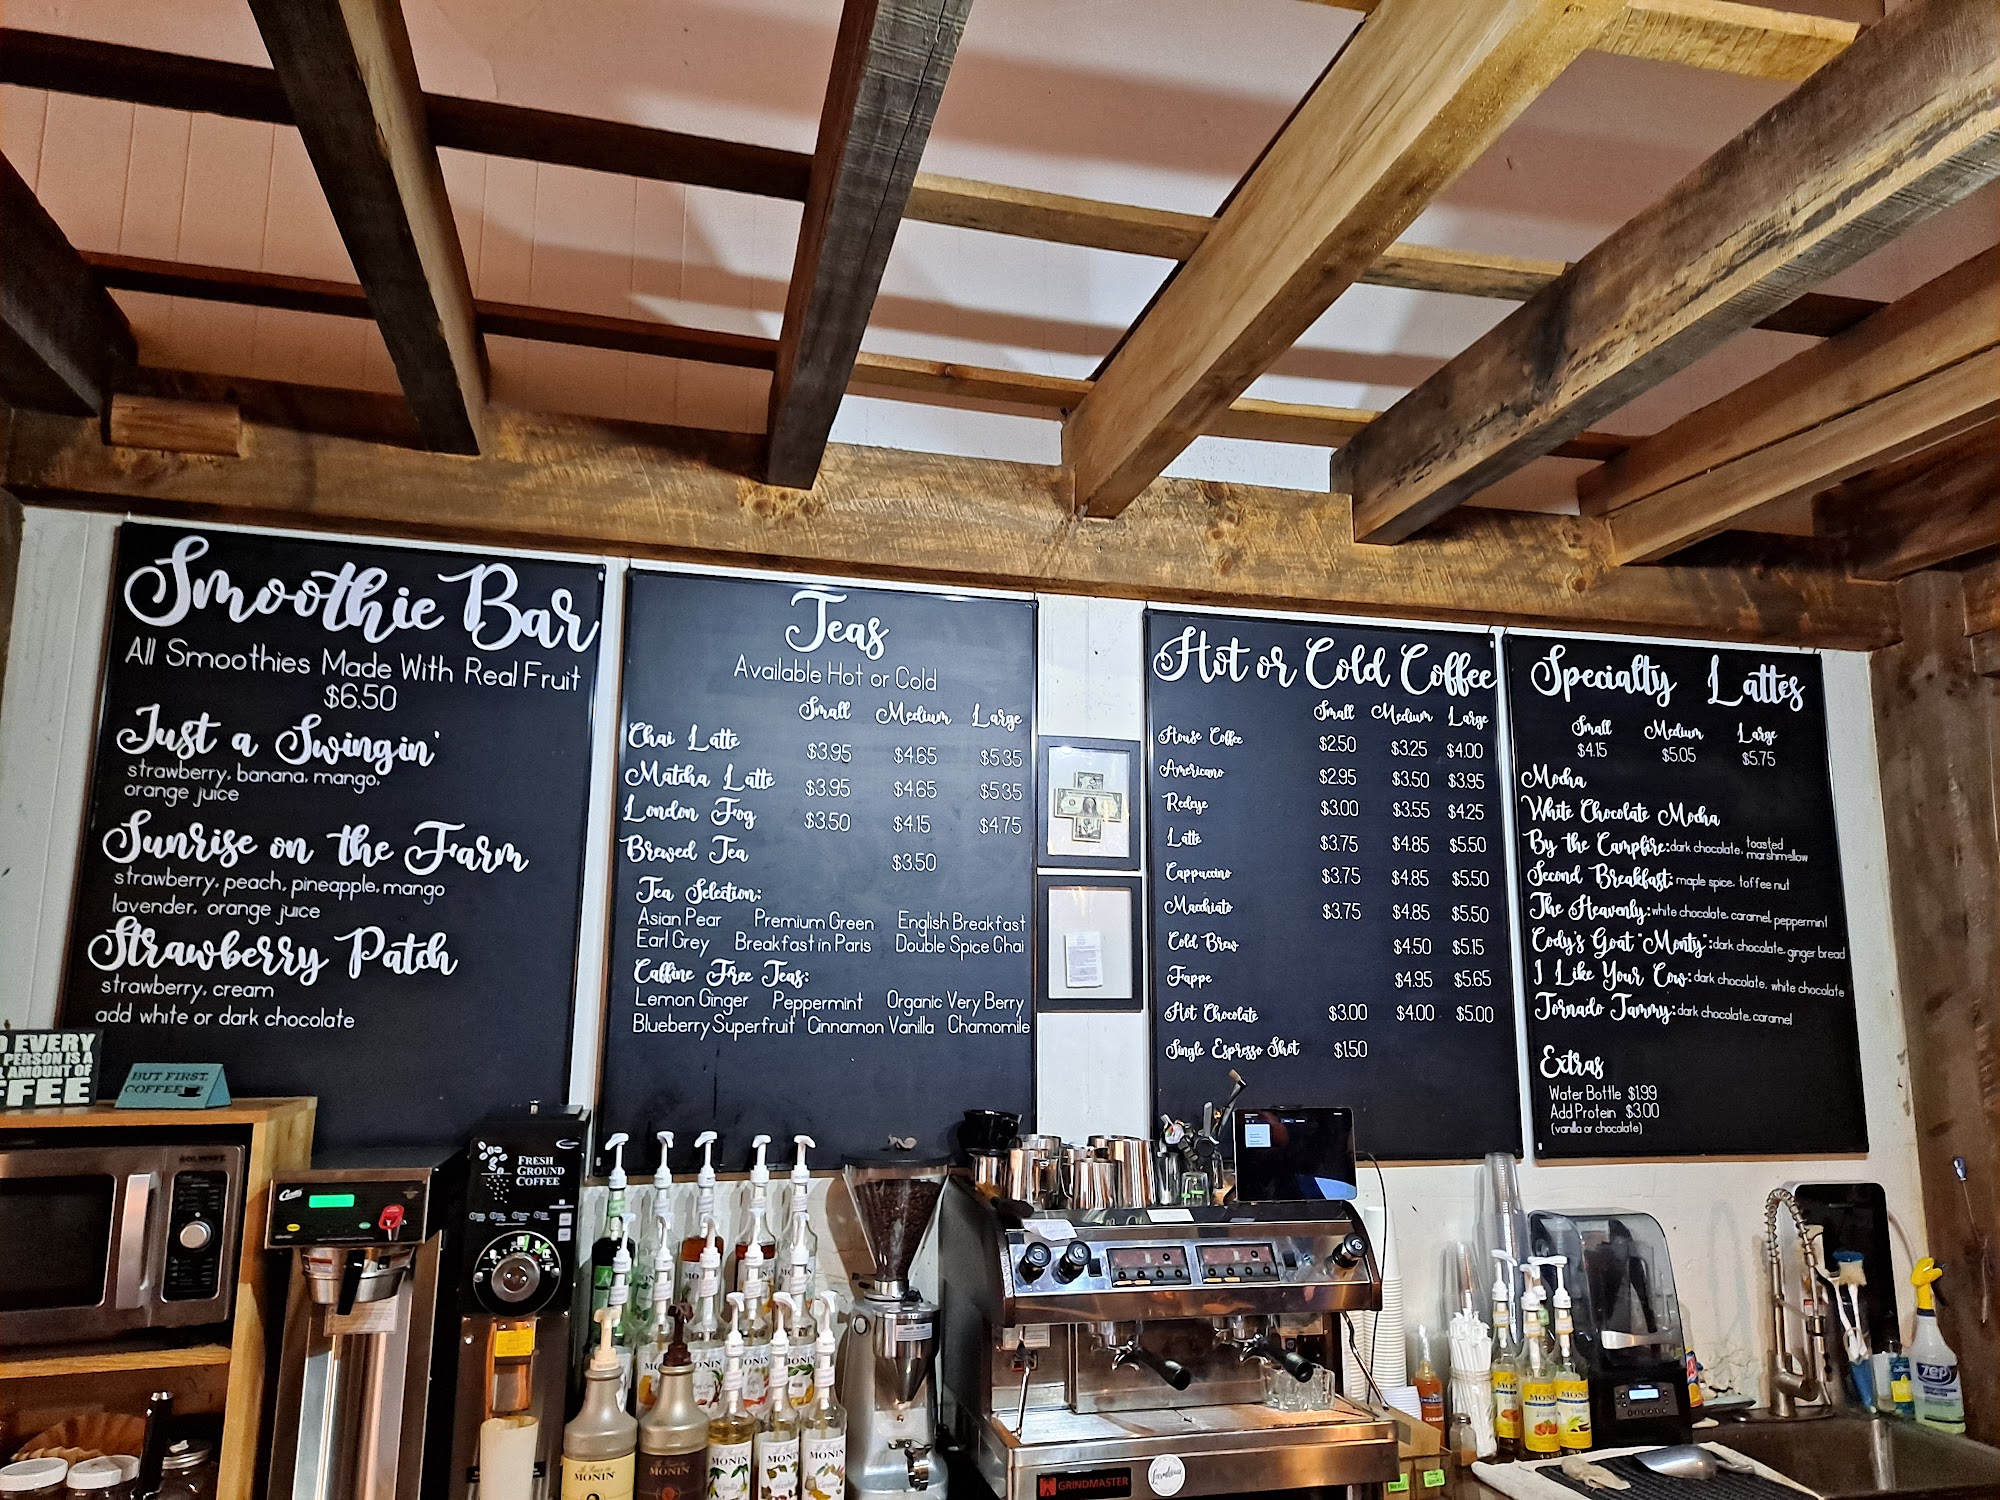 Smoothie Bar
All Smoothies Made With Real Fruit
$6.50
Just a Swingin'
strawberry, banana, mango,
orange juice
Sunrise on the Farm
strawberry, peach, pineapple, mango
lavender, orange juice
Strawberry Patch
strawberry, cream
add white or dark chocolate
Teas
Available Hot or Cold
Small Medium Large
Chai Latte $3.95 $4.65 $5.35
Matcha Latte $3.95 $4.65 $5.35
London Fog $3.50 $4.15 $4.75
Brewed Tea $3.50
Tea Selection:
Asian Pear Premium Green English Breakfast
Earl Grey Breakfast in Paris Double Spice Chai
Caffine Free Teas:
Lemon Ginger Peppermint Organic Very Berry
Blueberry Superfruit Cinnamon Vanilla Chamomile
Hot or Cold Coffee
Small Medium Large
House Coffee $2.50 $3.25 $4.00
Americano $2.95 $3.50 $3.95
Redeye $3.00 $3.55 $4.25
Latte $3.75 $4.85 $5.50
Cappuccino $3.75 $4.85 $5.50
Macchiato $3.75 $4.85 $5.50
Cold Brew $4.50 $5.15
Frappe $4.95 $5.65
Hot Chocolate $3.00 $4.00 $5.00
Single Espresso Shot $1.50
Specialty Lattes
Small Medium Large
$4.15 $5.05 $5.75
Mocha
White Chocolate Mocha
By the Campfire: dark chocolate, toasted marshmellow
Second Breakfast: maple spice, toffee nut
The Heavenly: white chocolate, caramel, peppermint
Cody's Goat "Monty": dark chocolate, ginger bread
I Like Your Cow: dark chocolate, white chocolate
Tornado Tammy: dark chocolate, caramel
Extras
Water Bottle $1.99
Add Protein $3.00
(vanilla or chocolate)
EVERY
PERSON IS A
AMOUNT OF
FFEE
BUT FIRST,
COFFEE
Curtis
FRESH
GROUND
COFFEE
MONIN
MONIN
MONIN
MONIN
MONIN
GRINDMASTER
ZEP